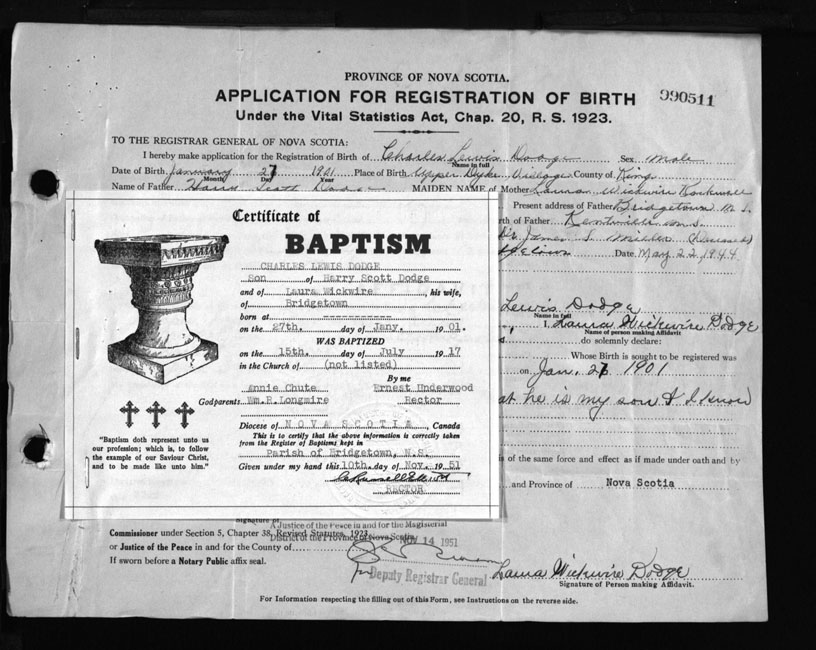 PROVINCE OF NOVA SCOTIA.
APPLICATION FOR REGISTRATION OF BIRTH
990511
Under the Vital Statistics Act, Chap. 20, R. S. 1923.
TO THE REGISTRAR GENERAL OF NOVA SCOTIA:
I hereby make application for the Registration of Birth of Charles Lewis Dodge Sex Male
Name in full
Date of Birth January 27 1901 Place of Birth Upper Dyke Village County of King
Month Day Year
Name of Father Harry Scott Dodge MAIDEN NAME of Mother Laura Wickwire Rockwell
Present address of Father Bridgetown N.S.
rth of Father Kentville N.S.
Dr. James S. Miller (Deceased)
Date May 22, 1944
Certificate of
BAPTISM
CHARLES LEWIS DODGE
Son of Harry Scott Dodge
and of Laura Wickwire, his wife,
of Bridgetown
born at -----------
on the 27th. day of Jany. 1901.
WAS BAPTIZED
on the 15th. day of July 1917
in the Church of (not listed)
By me
Annie Chute Ernest Underwood
Godparents Wm.R.Longmire Rector
Diocese of NOVA SCOTIA, Canada
This is to certify that the above information is correctly taken
from the Register of Baptisms kept in
Parish of Bridgetown, N.S.
Given under my hand this 10th. day of Nov. 1951
RECTOR
"Baptism doth represent unto us
our profession; which is, to follow
the example of our Saviour Christ,
and to be made like unto him."
Lewis Dodge
Name in full
I, Laura Wickwire Dodge
Name of person making Affidavit
do solemnly declare:
Whose Birth is sought to be registered was
on Jan. 27 1901
at he is my son & I know
is of the same force and effect as if made under oath and by
and Province of Nova Scotia
Signature of
A Justice of the Peace in and for the Magisterial
Commissioner under Section 5, Chapter 38, Revised Statutes, 1923
District of the Province of Nova Scotia
NOV 14 1951
or Justice of the Peace in and for the County of
If sworn before a Notary Public affix seal.
Deputy Registrar General
Laura Wickwire Dodge
Signature of Person making Affidavit.
For Information respecting the filling out of this Form, see Instructions on the reverse side.